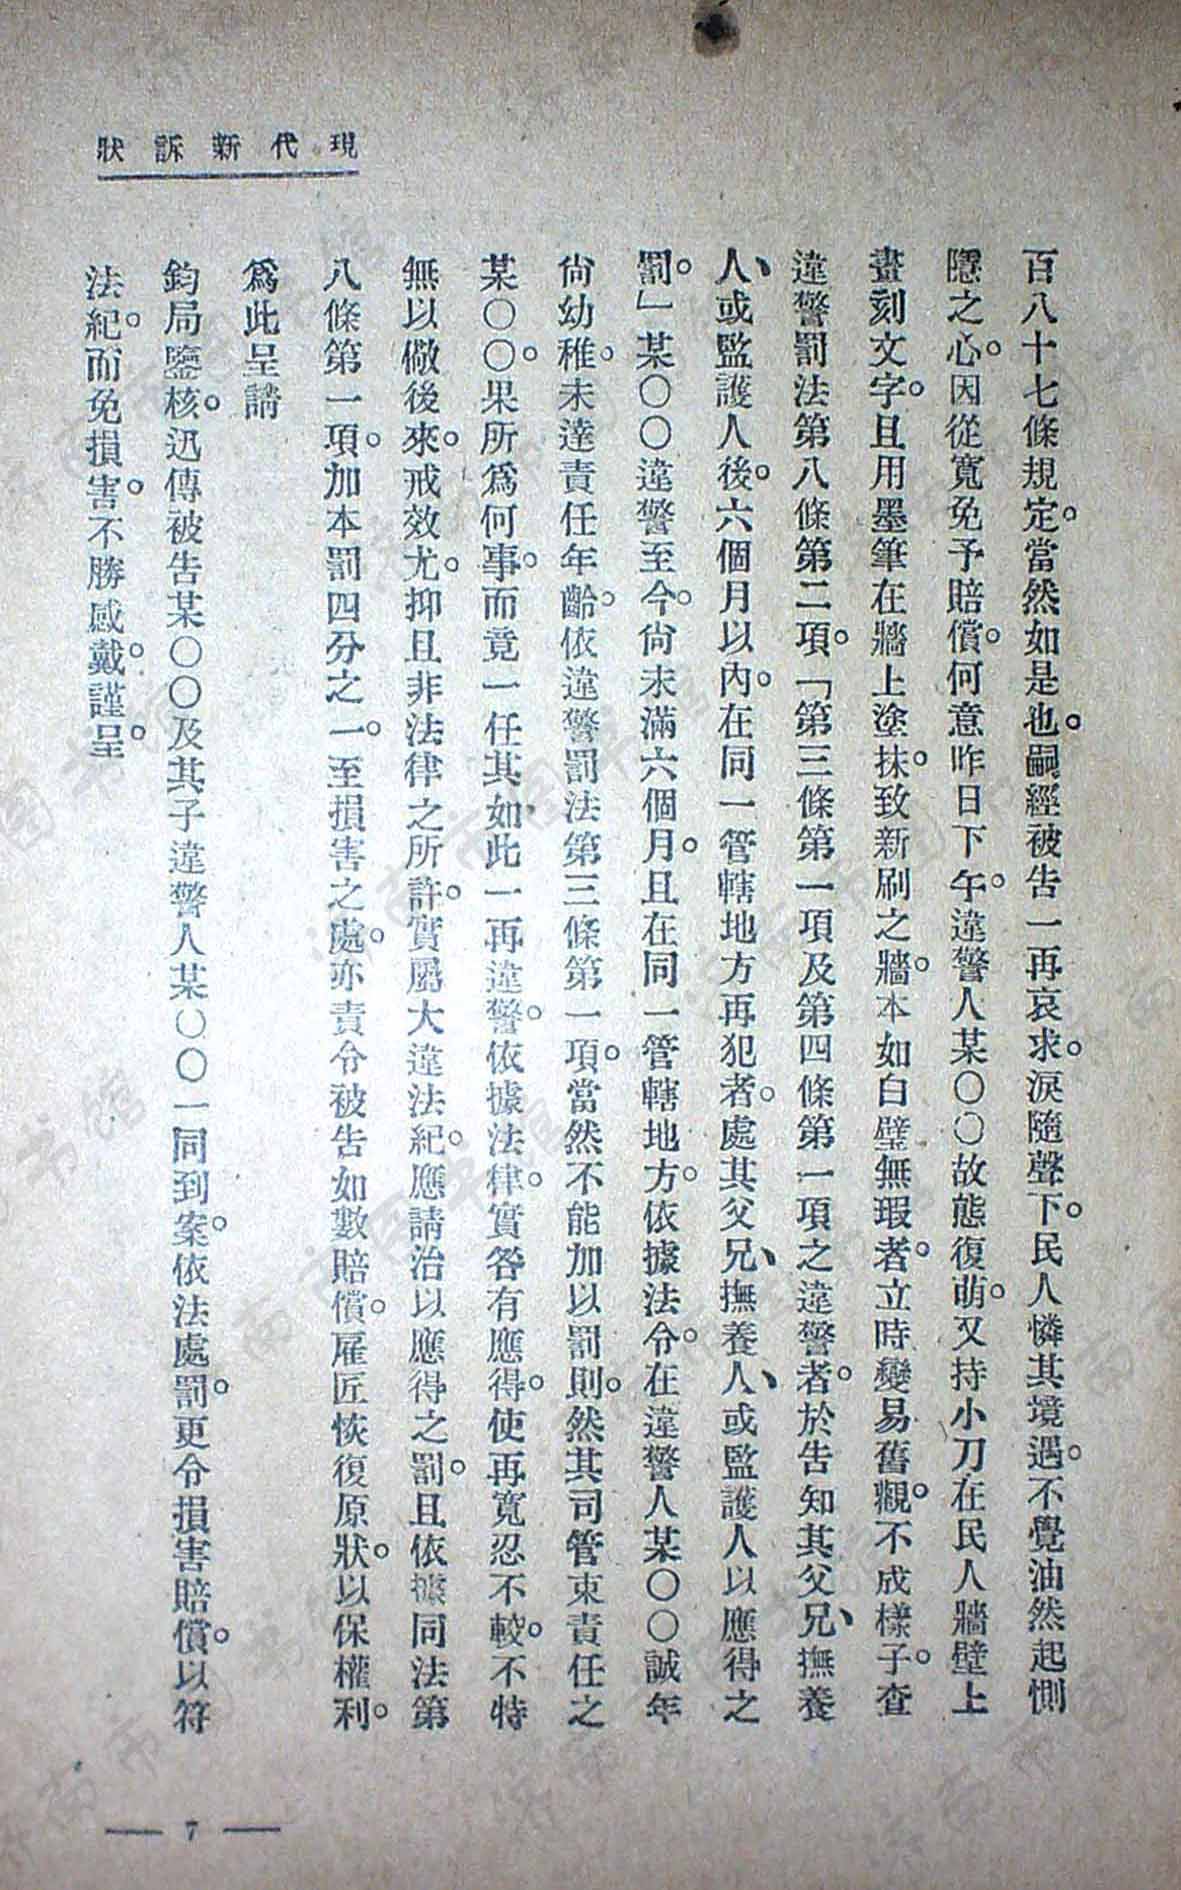 現代新訴狀
百八十七條規定。當然如是也。嗣經被告一再哀求。淚隨聲下。民人憐其境遇。不覺油然起惻
隱之心。因從寬免予賠償。何意昨日下午。違警人某〇〇故態復萌。又持小刀在民人牆壁上
畫刻文字。且用墨筆在牆上塗抹。致新刷之牆。本如白璧無瑕者。立時變易舊觀。不成樣子。查
違警罰法第八條第二項。「第三條第一項及第四條第一項之違警者。於告知其父兄、撫養
人、或監護人後。六個月以內。在同一管轄地方再犯者。處其父兄、撫養人、或監護人以應得之
罰。」某〇〇違警至今。尙未滿六個月。且在同一管轄地方。依據法令。在違警人某〇〇誠年
尙幼稚。未達責任年齡。依違警罰法第三條第一項。當然不能加以罰則。然其司管束責任之
某〇〇。果所爲何事。而竟一任其如此一再違警。依據法律。實咎有應得。使再寬忍不較。不特
無以儆後來。戒效尤。抑且非法律之所許。實屬大違法紀。應請治以應得之罰。且依據同法第
八條第一項。加本罰四分之一。至損害之處。亦責令被告如數賠償。雇匠恢復原狀。以保權利。
爲此呈請
鈞局鑒核。迅傳被告某〇〇及其子違警人某〇〇一同到案。依法處罰。更令損害賠償。以符
法紀。而免損害。不勝感戴。謹呈。
— 7 —